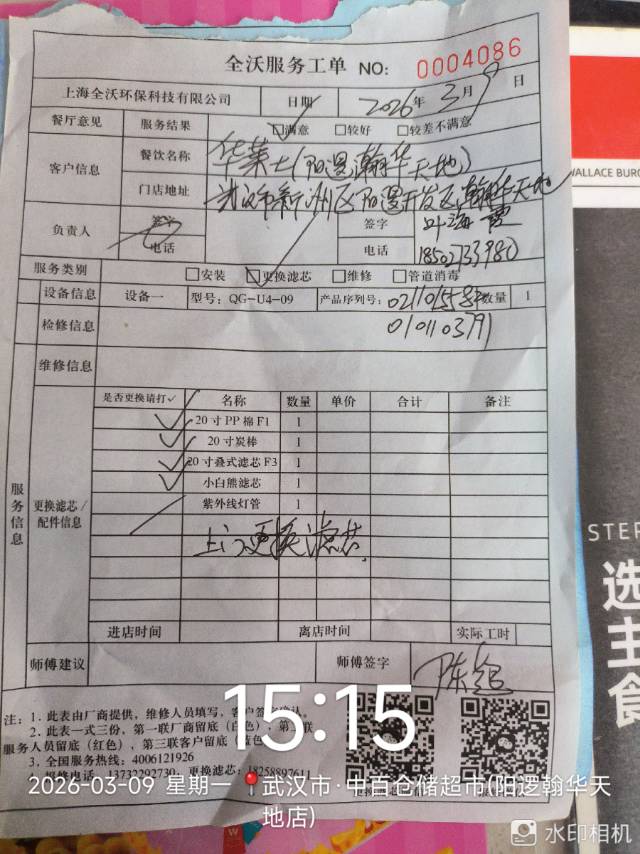 全沃服务工单 NO: 0004086
上海全沃环保科技有限公司 日期 2026年3月9日
餐厅意见 服务结果 ☑满意 □较好 □较差不满意
客户信息 餐饮名称 华莱士(阳逻瀚华天地)
门店地址 武汉市新洲区阳逻开发区瀚华天地
负责人 签字 签字 叶海霞
电话 电话 18502733980
服务类别 □安装 ☑更换滤芯 □维修 □管道消毒
设备信息 设备一 型号: QG-U4-09 产品序列号: 数量 1
检修信息 0101103791
维修信息
服务信息
更换滤芯/配件信息
是否更换请打✓ 名称 数量 单价 合计 备注
✓ 20寸PP棉F1 1
✓ 20寸炭棒 1
✓ 20寸叠式滤芯F3 1
✓ 小白熊滤芯 1
紫外线灯管 1
上门更换滤芯
进店时间 离店时间 实际工时
师傅建议 师傅签字
注: 1. 此表由厂商提供,维修人员填写,客户签字确认
2. 此表一式三份,第一联厂商留底(白色),第二联
服务人员留底(红色),第三联客户留底
3. 全国服务热线: 4006121926
报修电话: 13732292730; 更换滤芯: 18258897611
15:15
2026-03-09 星期一 武汉市·中百仓储超市(阳逻翰华天
地店)
水印相机
WALLACE BURG
STEP
选
主
食